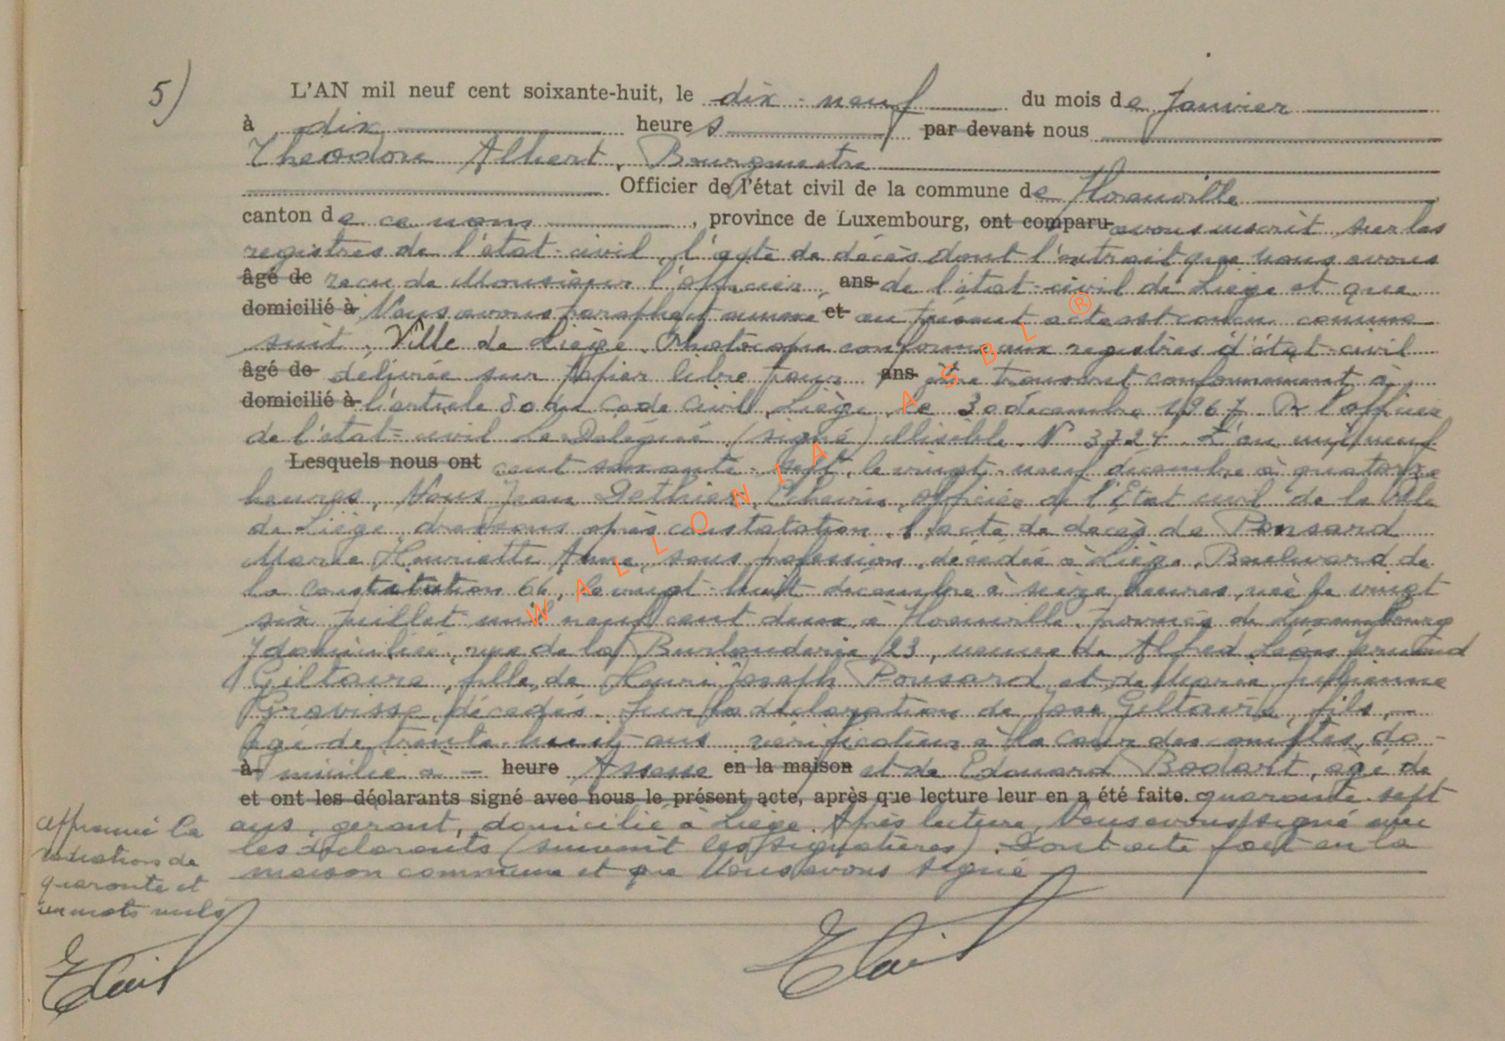 5)
L'AN mil neuf cent soixante-huit, le dix-neuf du mois de Janvier
à dix heures par devant nous
Théodore Albert, Bourgmestre
Officier de l'état civil de la commune de
canton de ce nom, province de Luxembourg, ont comparu avons inscrit sur les
registres de l'état-civil, l'acte de décès dont l'extrait que nous avons
âgé de reçu de Monsieur l'officier ans de l'état-civil de Liège et que
domicilié à Nous avons paraphé et annexé et au présent acte est conçu comme
suit. Ville de Liège. Photocopie conforme aux registres d'état-civil
âgé de délivrée sur papier libre pour ans être transcrit conformément à
domicilié à l'article 80 du Code Civil, Liège, le 30 décembre 1967. Pr l'officier
de l'état-civil Le Délégué (signé) illisible. N° 3724. L'an mil neuf
Lesquels nous ont cent soixante-sept, le vingt-neuf décembre à quatorze
heures, Nous Jean Dethier, Echevin, officier de l'Etat civil de la ville
de Liège, dressons après constatation, l'acte de décès de Ponsard
Marie Henriette Anne, sans profession, décédée à Liège, Boulevard de
la Constitution 66, le vingt-huit décembre à seize heures, née le vingt
six juillet mil neuf cent deux, à province de Luxembourg
domiciliée, rue de la 23, veuve de Alfred
Giltaire, fille de Henri Joseph Ponsard et de Marie Julienne
Gravisse, décédés. Sur la déclaration de José Giltaire, fils,
âgé de trente-huit ans, vérificateur à la cour des comptes, do-
à micilié à heure Assesse en la maison et de Edouard Bodart, âgé de
et ont les déclarants signé avec nous le présent acte, après que lecture leur en a été faite. quarante-sept
ans, gérant, domicilié à Liège. Après lecture, Nous avons signé avec
les déclarants (suivent les signatures). Dont acte fait en la
maison commune et que Nous avons signé
Approuvé la
radiation de
quarante et
un mots nuls
WALLONIA ASBL ®